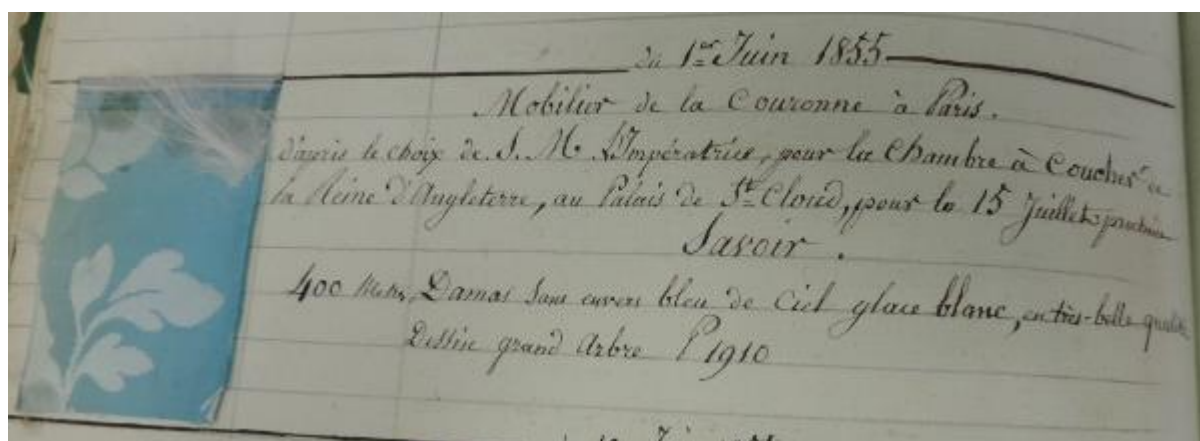 du 1er Juin 1855
Mobilier de la Couronne à Paris.
d'après le choix de S. M. L'Impératrice, pour la Chambre à Coucher de
la Reine d'Angleterre, au Palais de St Cloud, pour le 15 Juillet prochain
Savoir.
400 Metres Damas Sans envers bleu de Ciel glacé blanc, en très-belle qualité
Dessin grand Arbre P 1910